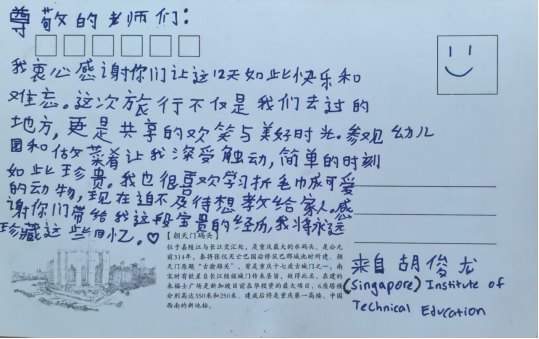 尊敬的老师们：
我衷心感谢你们让这12天如此快乐和
难忘。这次旅行不仅是我们去过的
地方，更是共享的欢笑与美好时光。参观幼儿
园和做菜肴让我深受触动，简单的时刻
如此珍贵。我也很喜欢学习折毛巾成可爱
的动物，现在迫不及待想教给家人。感
谢你们带给我这段宝贵的经历，我将永远
珍藏这些回忆。♡
【朝天门码头】
位于嘉陵江与长江交汇处，是重庆最大的水码头。是公元
前314年，秦将张仪灭亡巴国后修筑巴郡城池时所建。朝天
门原题"古渝雄关"，曾是重庆十七座古城门之一。南
宋时有钦差自长江经该城门传来圣旨，故得此名。在建的
来福士广场是新加坡目前在华投资的最大项目，6座塔楼
分别高达350米和250米，建成后将是重庆第一高楼、中国
西南的新地标。
来自 胡俊龙
(Singapore) Institute of
Technical Education